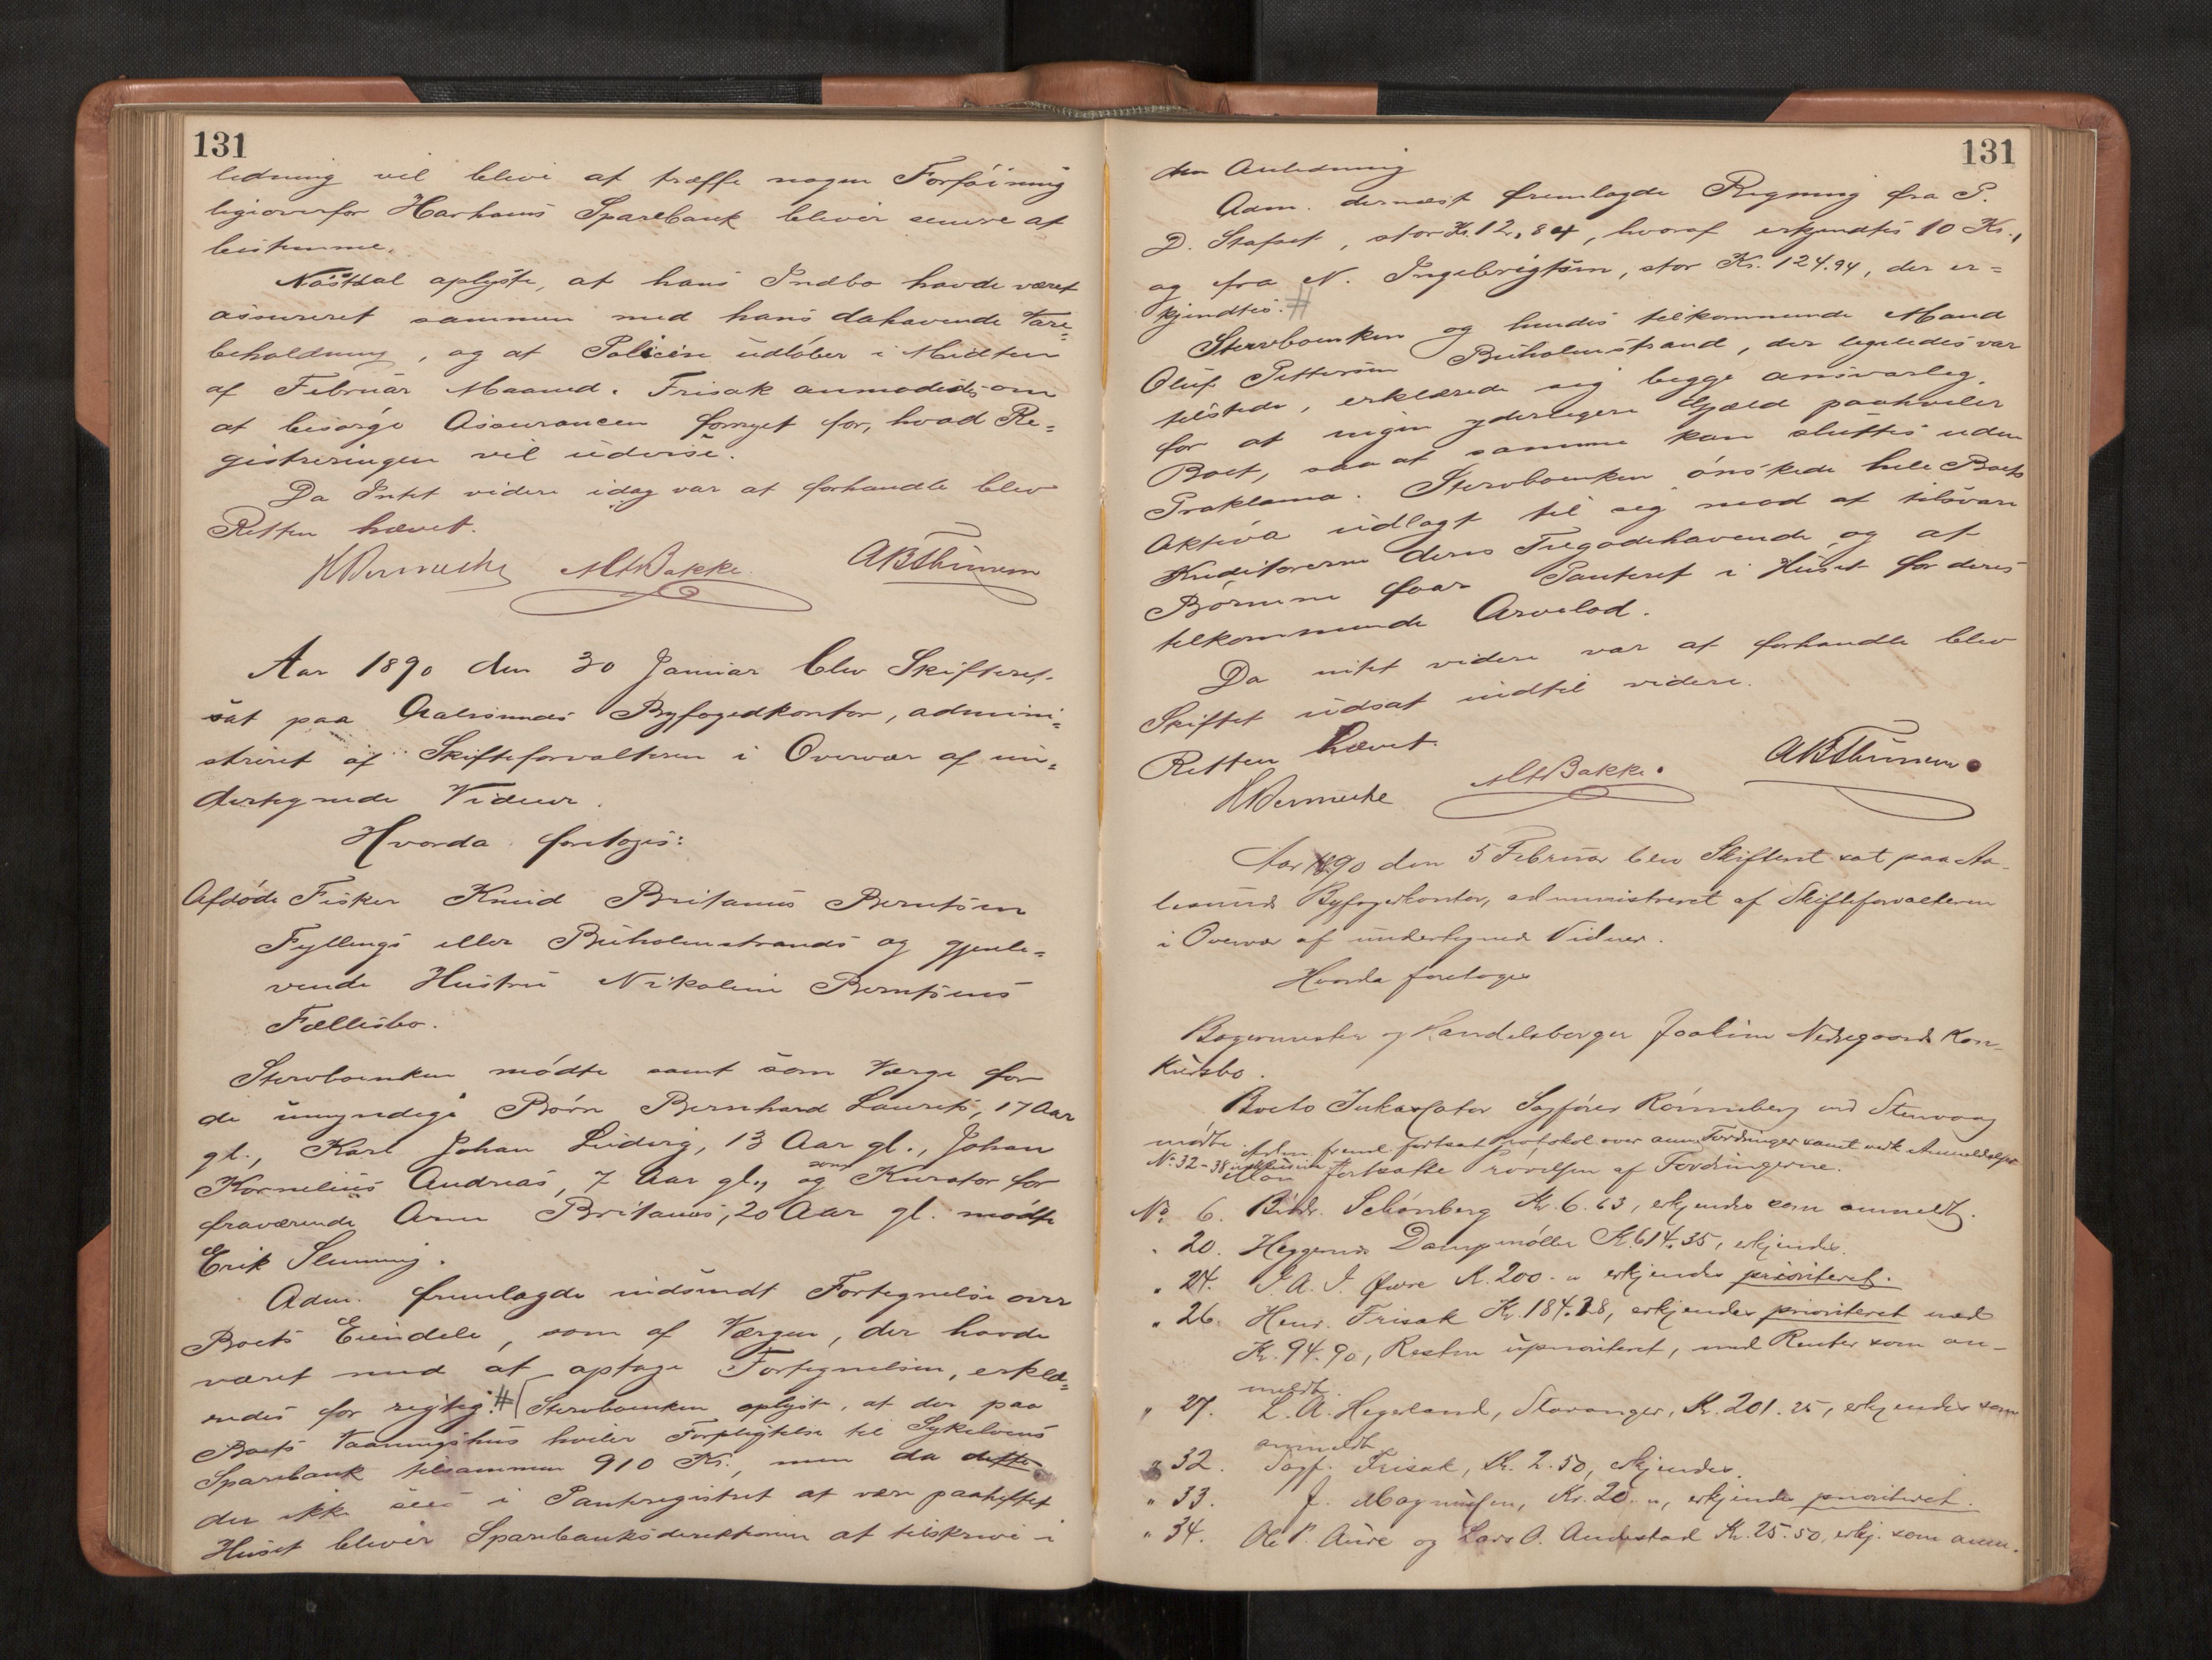 131
ledning vil blive at træffe nogen Forføining
ligeoverfor Harhams Sparebank bliver senere at
bestemme.
Nastdal oplyste, at hans Indbo havde været
assureret sammen med hans dahavende Vare-
beholdning, og at Policen udløber i Midten
af Februar Maaned. Frisak anmodedes om
at besørge Assurancen fornyet for, hvad Re-
gistreringen vil udvise.
Da Intet videre idag var at forhandle blev
Retten hævet.
M Bakke
Aar 1890 den 30 Januar blev Skifteret
sat paa Aalesunds Byfogedkontor, admini-
streret af Skifteforvalteren i Overvær af un-
dertegnede Vidner.
Hvorda foretoges:
Afdøde Fisker Knud Britanus Berntsen
Fyllings eller Buholmstrands og gjenle-
vende Hustru Nikoline Berntsens
Fællesbo.
Stervboenken mødte samt som Værge for
de umyndige Børn Bernhard Laurits, 17 Aar
gl., Karl Johan Ludvig, 13 Aar gl., Johan
Kornelius Andreas, 7 Aar gl., og som Kurator for
fraværende Arn Britanus, 20 Aar gl. mødte
Erik Slinning.
Adm. fremlagde indsendt Fortegnelse over
Boets Eiendele, som af Værgen, der havde
været med at optage Fortegnelsen, erklæ-
redes for rigtig. # Stervboenken oplyste, at der paa
Boets Vaaningshus hviler Forpligtelse til Sykelvens
Sparebank tilsammen 910 Kr., men da dette
der ikke sees i Panteregistret at være paaheftet
Huset bliver Sparebanksdirektionen at tilskrive i
131
den Anledning
Adm. dernæst fremlagde Regning fra P.
D. Stafset, stor Kr. 12,84, hvoraf erkjendtes 10 Kr.,
og fra N. Ingebrigtsen, stor Kr. 124.94, der er-
kjendtes. #
Stervboenken og hendes tilkommende Mand
Oluf Pettersen Buholmstrand, der ligeledes var
tilstede, erklærede sig begge ansvarlig
for at ingen yderligere Gjæld paahviler
Boet, saa at samme kan sluttes uden
Proklama. Stervboenken ønskede hele Boets
Aktiva udlagt til sig mod at tilsvare
Kreditorerne deres Tilgodehavende og at
Børnene faar Panteret i Huset for deres
tilkommende Arvelod.
Da intet videre var at forhandle blev
Skiftet udsat indtil videre.
Retten hævet.
M Bakke
Aar 1890 den 5 Februar blev Skifteret sat paa Aa-
lesunds Byfogedkontor, administreret af Skifteforvalteren
i Overvær af undertegnede Vidner.
Hvorda foretoges
Bagermester og Handelsborger Joakim Nedregaards Kon-
kursbo.
Boets Inkassator Sagfører Rønneberg ved Stenvaag
mødte. Adm. freml. fortsat Protokol over anm. Fordringer samt vedk. Anmeldelser
No. 32-38 inklusive. Man fortsatte Prøvelsen af Fordringerne.
No. 6. Brødr. Schønberg Kr. 6.63, erkjendes som anmeldt.
" 20. Heggernes Dampmølle Kr. 614.35, erkjendes.
" 24. P. A. J. Øwre Kr. 200. " erkjendes prioriteret.
" 26. Henr. Frisak Kr. 184.28, erkjendes prioriteret med
Kr. 94.90, Resten uprioriteret, med Renter som an-
meldt.
" 27. L. A. Hegerland, Stavanger, Kr. 201.25, erkjendes som
anmeldt.
" 32. Sagf. Frisak, Kr. 2.50, erkjendes.
" 33. J. Magnussen, Kr. 20. ", erkjendes prioriteret.
" 34. Ole P. Aure og Lars O. Andestad Kr. 25.50, erkj. som anm.